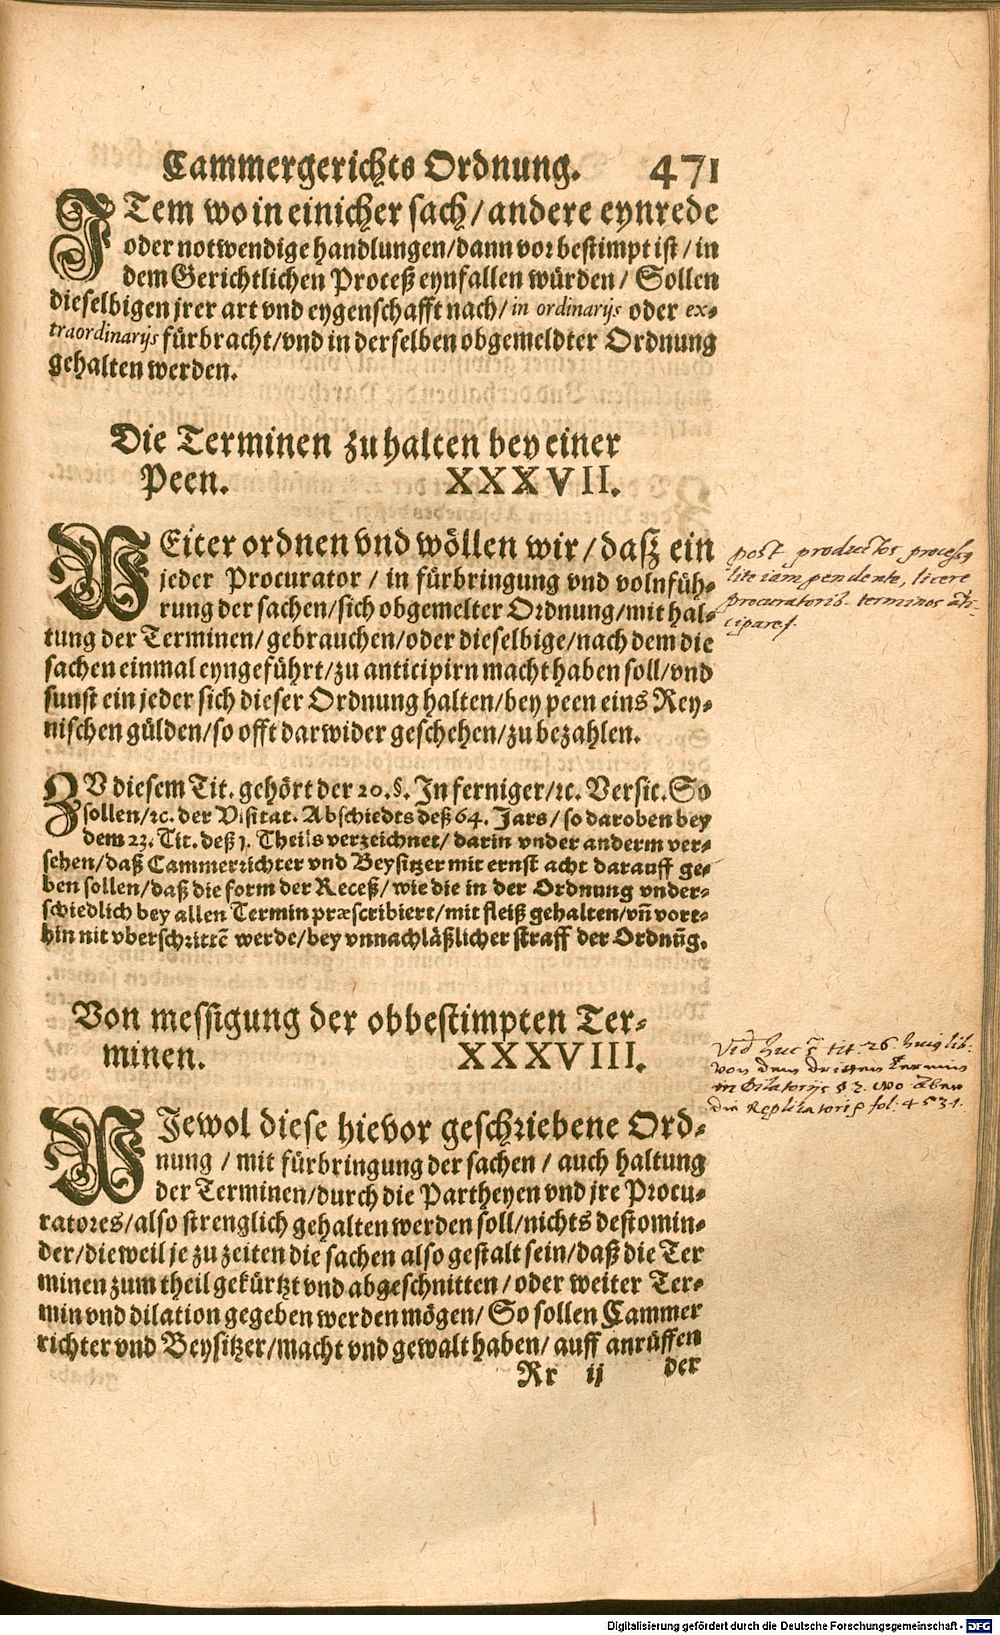 Cammergerichts Ordnung. 471
ITem wo in einicher sach / andere eynrede
oder notwendige handlungen/dann vorbestimpt ist / in
dem Gerichtlichen Proceß eynfallen würden / Sollen
dieselbigen jrer art vnd eygenschafft nach/ in ordinarijs oder ex-
traordinarijs fürbracht/vnd in derselben obgemeldter Ordnung
gehalten werden.
Die Terminen zu halten bey einer
Peen. XXXVII.
WEiter ordnen vnd wöllen wir / daß ein
jeder Procurator / in fürbringung vnd volnfüh-
rung der sachen/sich obgemelter Ordnung/mit hal-
tung der Terminen/gebrauchen/oder dieselbige/nach dem die
sachen einmal eyngeführt/zu anticipirn macht haben soll/vnd
sunst ein jeder sich dieser Ordnung halten/bey peen eins Rey-
nischen gülden/so offt darwider geschehen/zu bezahlen.
post productos
lite iam pendente, licere
procuratorib. terminos
ZV diesem Tit. gehört der 20.§. In ferniger/ꝛc. Versic. So
sollen/ꝛc. der Visitat. Abschiedts deß 64. Jars / so daroben bey
dem 23. Tit. deß 1. Theils verzeichnet/ darin vnder anderm ver-
sehen/daß Cammerrichter vnd Beysitzer mit ernst acht darauff ge-
ben sollen/daß die form der Receß/wie die in der Ordnung vnder-
schiedlich bey allen Termin præscribiert/mit fleiß gehalten/vñ vort-
hin nit vberschrittẽ werde/bey vnnachläßlicher straff der Ordnũg.
Von messigung der obbestimpten Ter-
minen. XXXVIII.
tit. 26. huius lib.
von dem dritten termin
in dilatorijs § 2. wo aber
die Replicatori fol. 453.
WJewol diese hievor geschriebene Ord-
nung / mit fürbringung der sachen / auch haltung
der Terminen/durch die Partheyen vnd jre Procu-
ratores/also strenglich gehalten werden soll/nichts destomin-
der/dieweil je zu zeiten die sachen also gestalt sein/daß die Ter
minen zum theil gekürtzt vnd abgeschnitten/oder weiter Ter-
min vnd dilation gegeben werden mögen/ So sollen Cammer
richter vnd Beysitzer/macht vnd gewalt haben/ auff anrüffen
Rr ij der
Digitalisierung gefördert durch die Deutsche Forschungsgemeinschaft - DFG